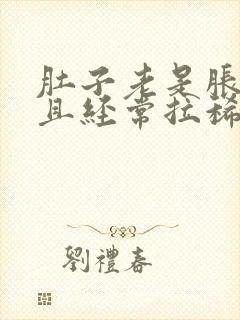 肚子老是脹
且經常拉稀
劉禮春